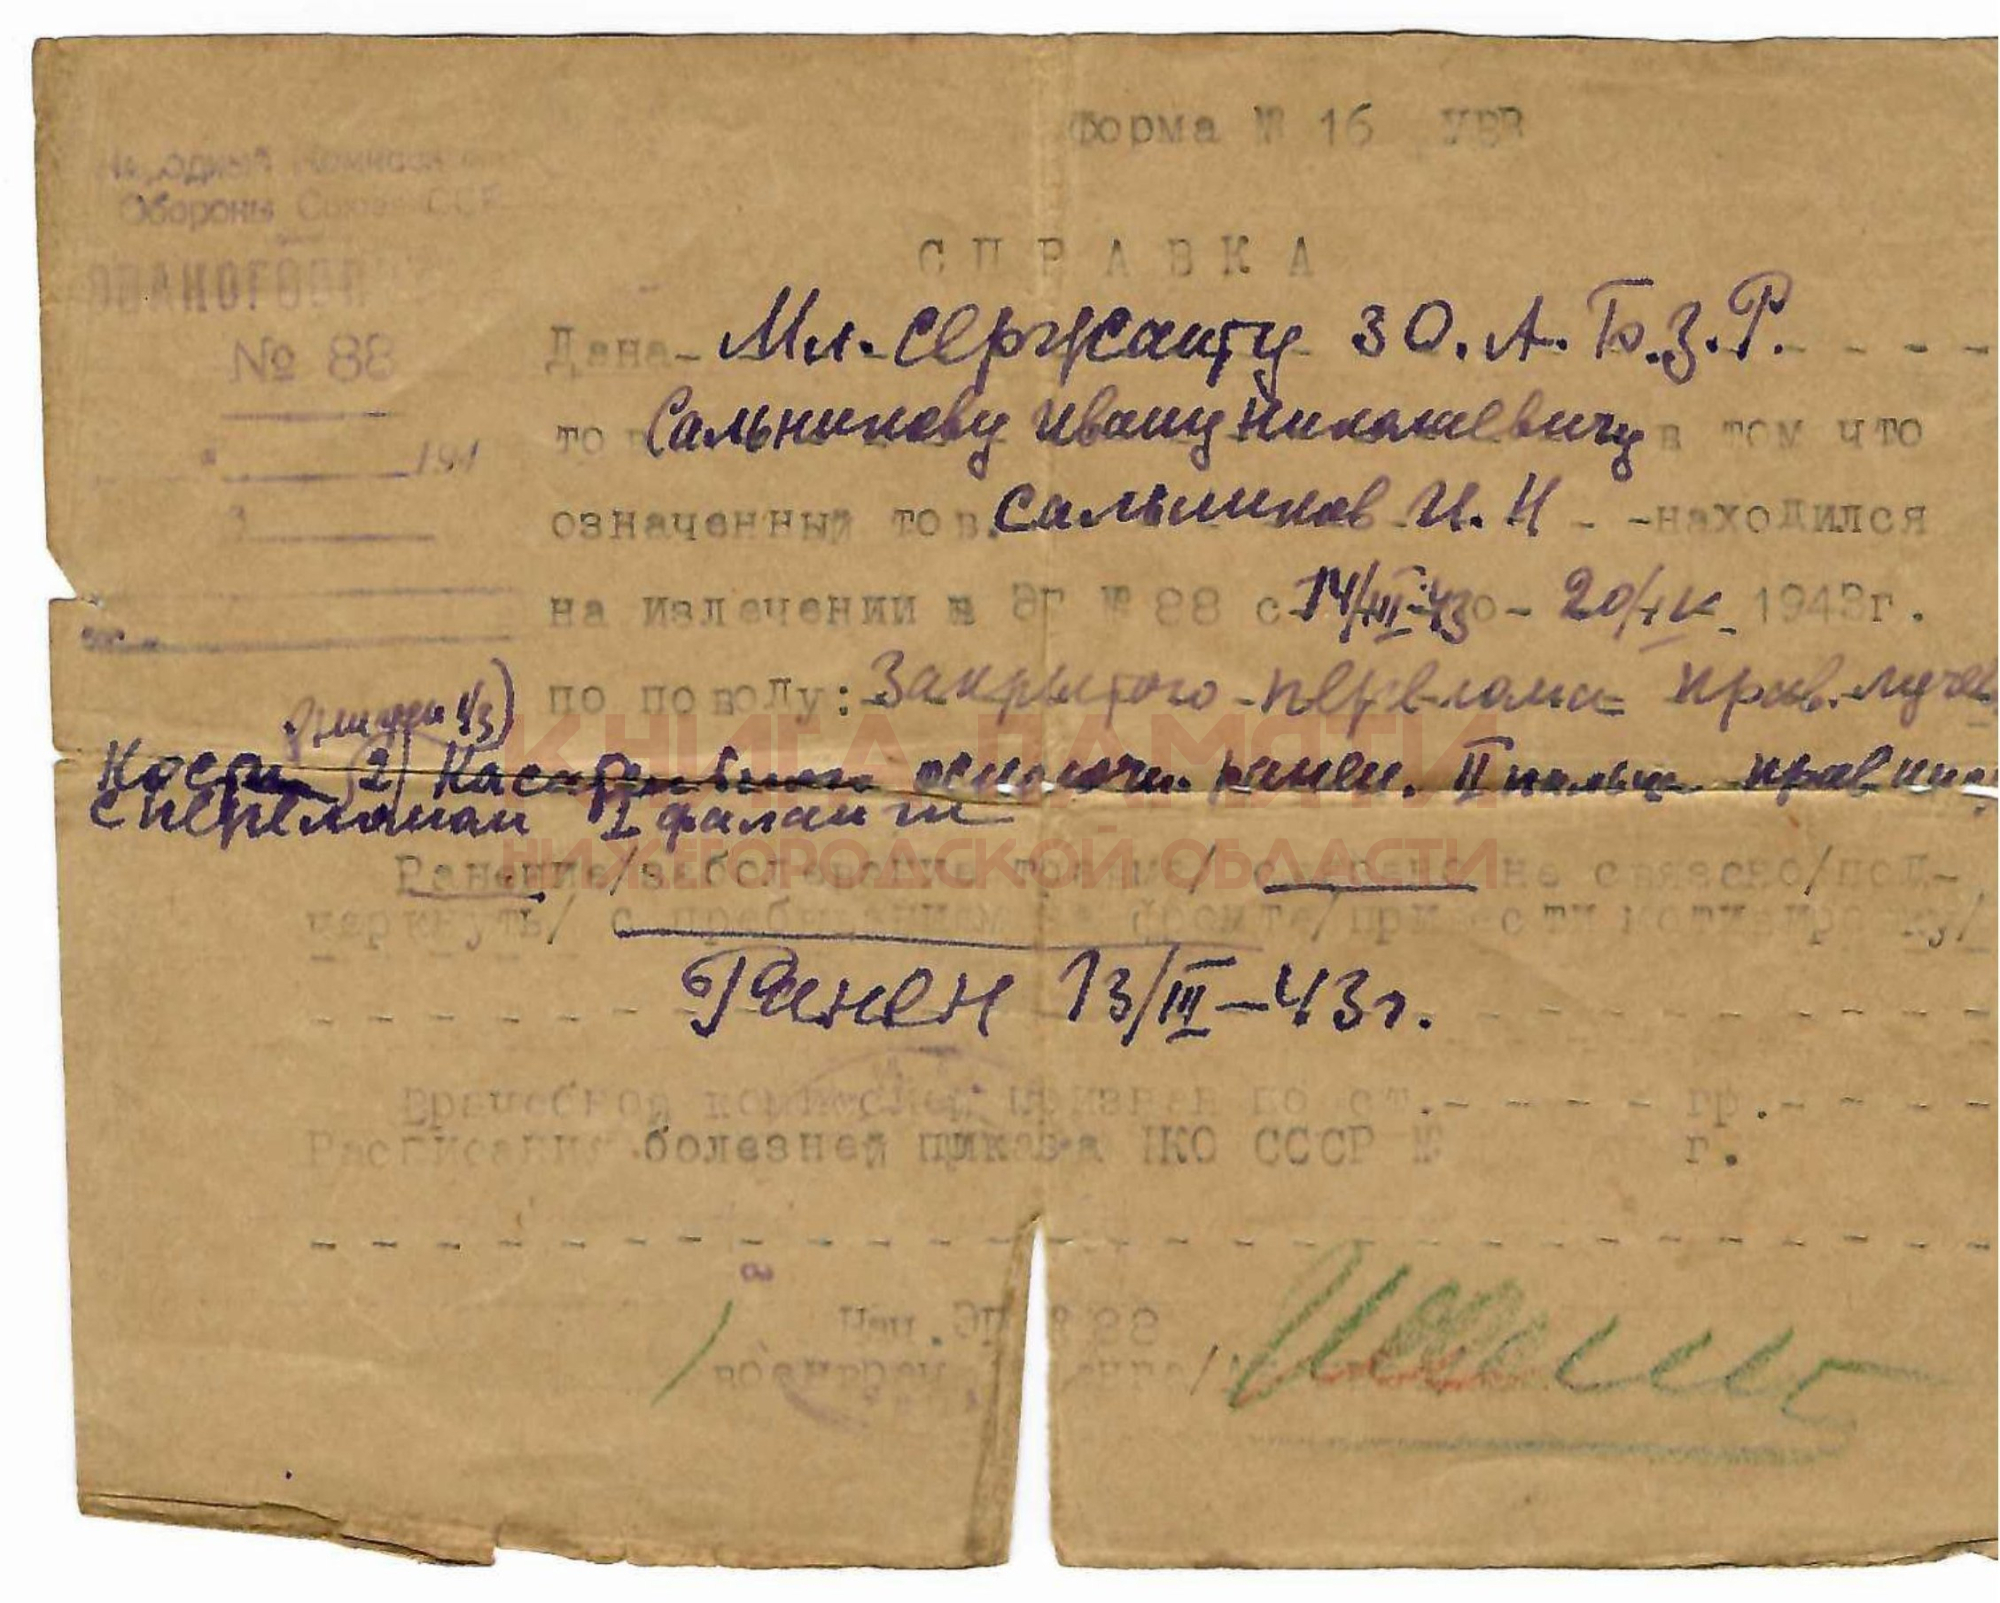 Форма № 16 УВВ
Народный Комиссариат
Обороны Союза ССР
ЭВАКОГОСП
№ 88
194
СПРАВКА
Дана Мл. сержанту 30. А. Б. З. Р.
тов Сальникову Ивану Николаевичу в том что
означенный тов. Сальников И. Н - -находился
на излечении в ЭГ № 88 с 14/III-43 по - 20/IV 1943г.
по поводу: Закрытого перелома прав. лучев
(нижн 1/3)
Кости 2) Касательн осколочн. ранен. II пальца прав
с переломом I фаланги
Ранение/заболевание травма/ связано не связано/под-
черкнуть/ с пребыванием на фронте/привести мотивировку/
Ранен 13/III-43г.
Врачебной комиссией признан по ст. - - - - гр. - - - -
Расписания болезней приказа НКО СССР № г.
Нач. ЭГ № 88
военврач ранга/
КНИГА ПАМЯТИ
НИЖЕГОРОДСКОЙ ОБЛАСТИ